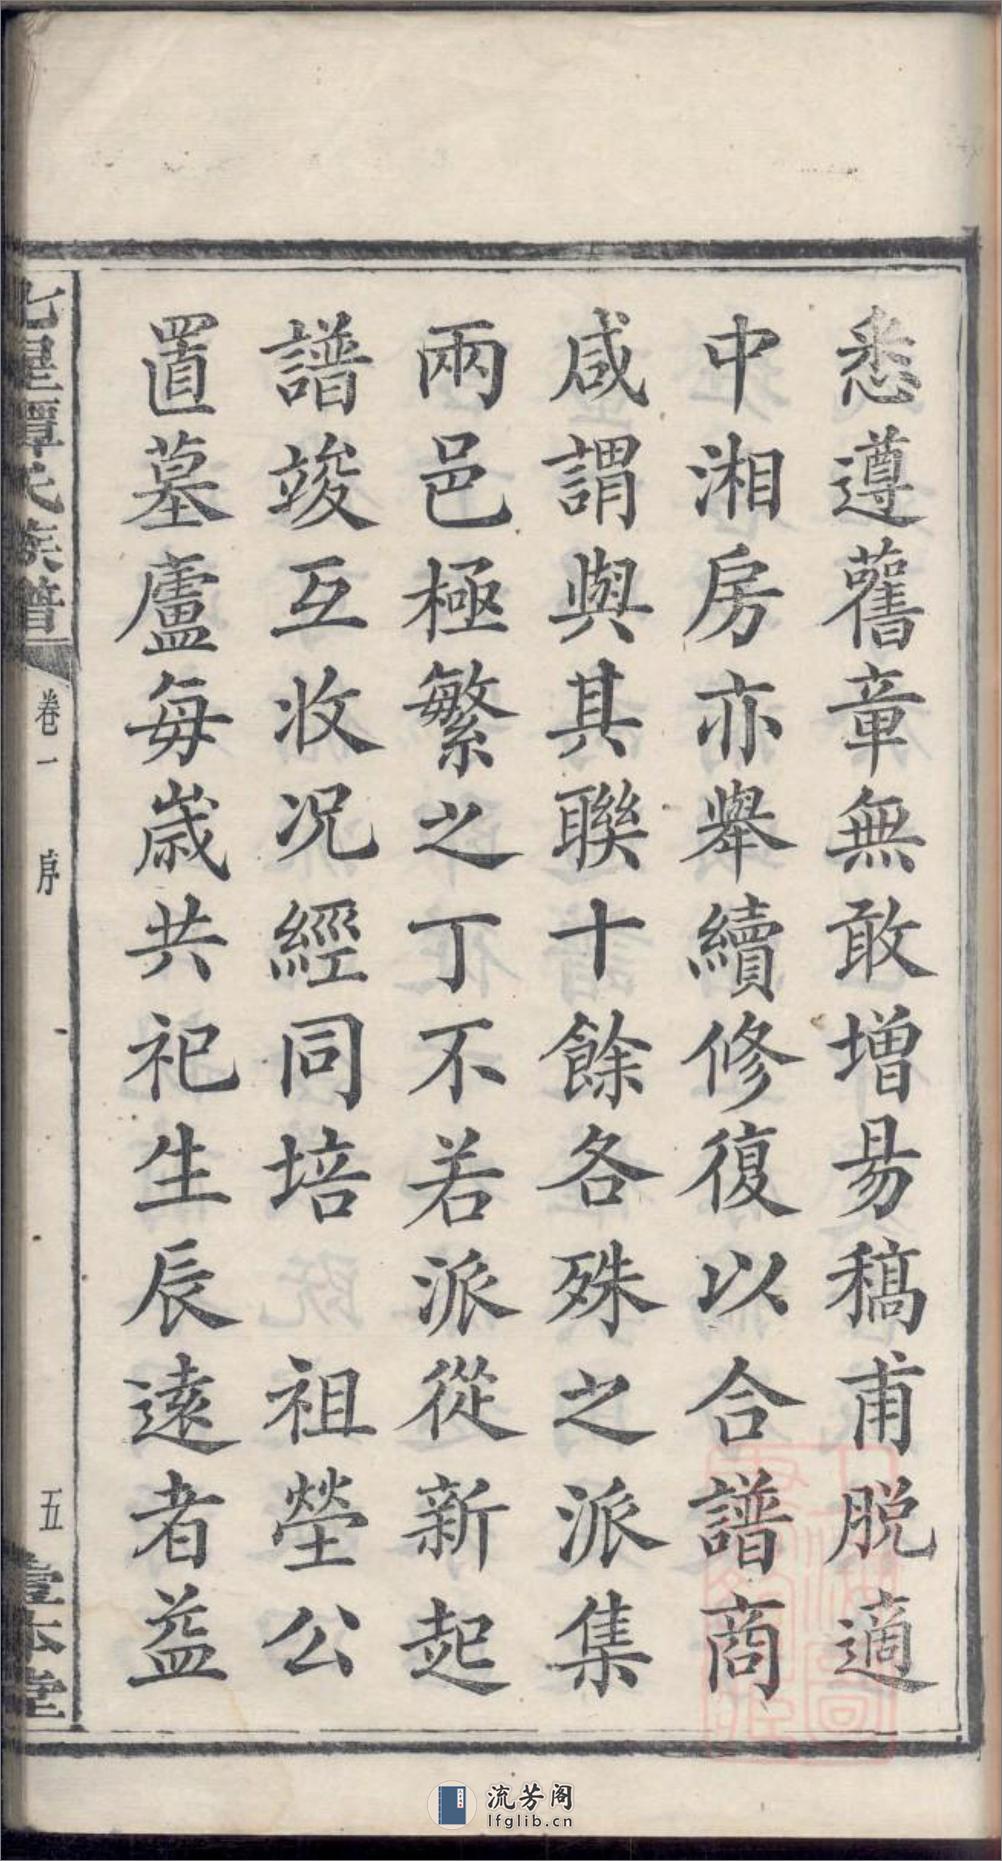 悉遵舊章無敢增易稿甫脱適
中湘房亦舉續修復以合譜商
咸謂與其聯十餘各殊之派集
兩邑極繁之丁不若派從新起
譜竣互收况經同培 祖塋公
置墓廬每歲共祀生辰遠者益
七星譚氏族譜
卷一 序
五
壹本堂
流芳阁
lfglib.cn